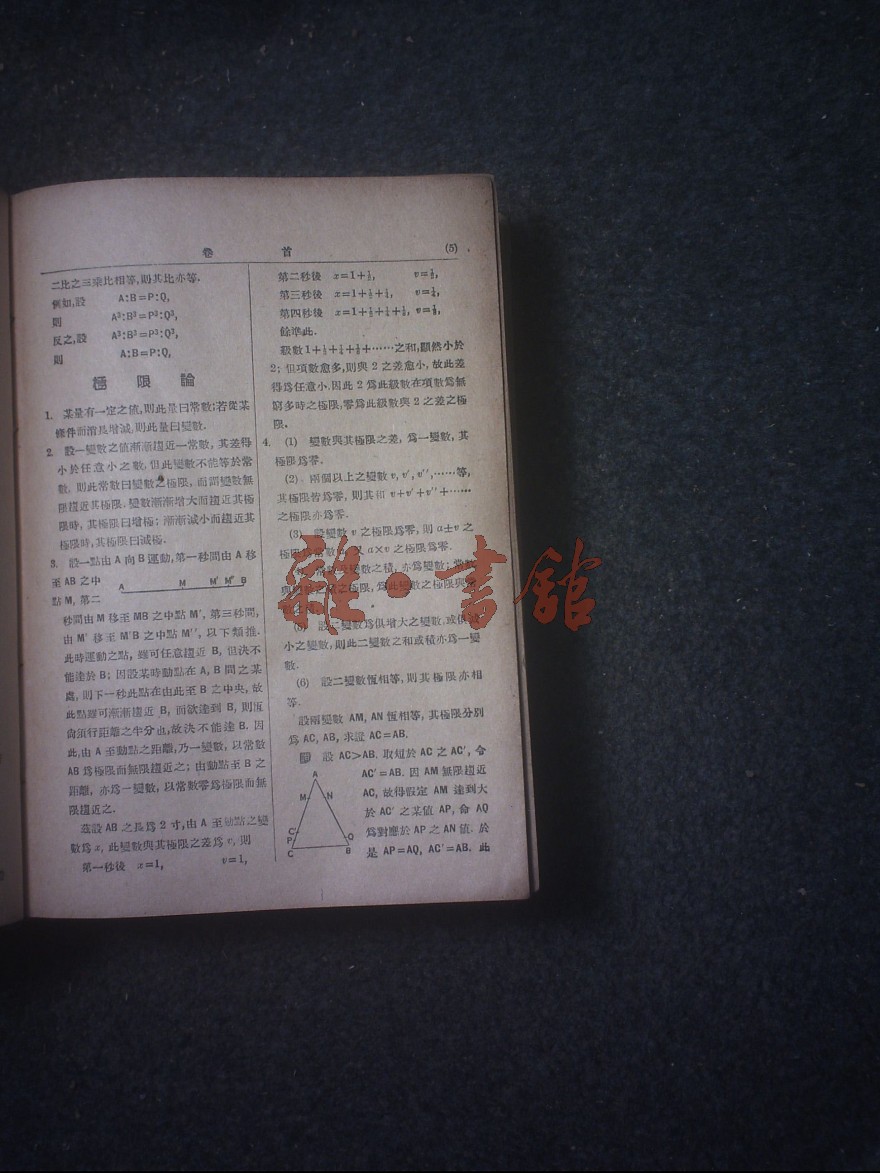 卷 首 (5)
二比之三乘比相等,則其比亦等.
例如,設 A:B=P:Q,
則 A³:B³=P³:Q³,
反之,設 A³:B³=P³:Q³,
則 A:B=P:Q,
極限論
1. 某量有一定之值,則此量曰常數;若從某
條件而消長增減,則此量曰變數.
2. 設一變數之值漸漸趨近一常數,其差得
小於任意小之數,但此變數不能等於常
數,則此常數曰變數之極限,而謂變數無
限趨近其極限.變數漸漸增大而趨近其極
限時,其極限曰增極;漸漸減小而趨近其
極限時,其極限曰減極.
3. 設一點由 A 向 B 運動,第一秒間由 A 移
至 AB 之中
A M M′ M″ B
點 M, 第二
秒間由 M 移至 MB 之中點 M′, 第三秒間,
由 M′ 移至 M′B 之中點 M″, 以下類推.
此時運動之點,雖可任意趨近 B, 但決不
能達於 B; 因設某時動點在 A, B 間之某
處,則下一秒此點在由此至 B 之中央,故
此點雖可漸漸趨近 B, 而欲達到 B, 則恆
尙須行距離之半分也,故決不能達 B. 因
此,由 A 至動點之距離,乃一變數,以常數
AB 爲極限而無限趨近之;由動點至 B 之
距離,亦爲一變數,以常數零爲極限而無
限趨近之.
茲設 AB 之長爲 2 寸,由 A 至動點之變
數爲 x, 此變數與其極限之差爲 v, 則
第一秒後 x=1, v=1,
第二秒後 x=1+½, v=½,
第三秒後 x=1+½+¼, v=¼,
第四秒後 x=1+½+¼+⅛, v=⅛,
餘準此.
級數 1+½+¼+⅛+……之和,顯然小於
2; 但項數愈多,則與 2 之差愈小,故此差
得爲任意小.因此 2 爲此級數在項數爲無
窮多時之極限,零爲此級數與 2 之差之極
限.
4. (1) 變數與其極限之差,爲一變數,其
極限爲零.
(2) 兩個以上之變數 v, v′, v″,……等,
其極限皆爲零,則其和 v+v′+v″+……
之極限亦爲零.
(3) 設變數 v 之極限爲零,則 a±v 之
極限爲常數 又 a×v 之極限爲零.
變數之積,亦爲變數;常數
之極限,爲此變數之極限與常
雜·書館
(5) 設二變數爲俱增大之變數,或俱減
小之變數,則此二變數之和或積亦爲一變
數.
(6) 設二變數恆相等,則其極限亦相
等.
設兩變數 AM, AN 恆相等,其極限分別
爲 AC, AB, 求證 AC=AB.
設 AC>AB. 取短於 AC 之 AC′, 令
AC′=AB. 因 AM 無限趨近
AC, 故得假定 AM 達到大
於 AC′ 之某值 AP, 命 AQ
爲對應於 AP 之 AN 值. 於
是 AP=AQ, AC′=AB. 此
A
M N
C′ Q
P
C B